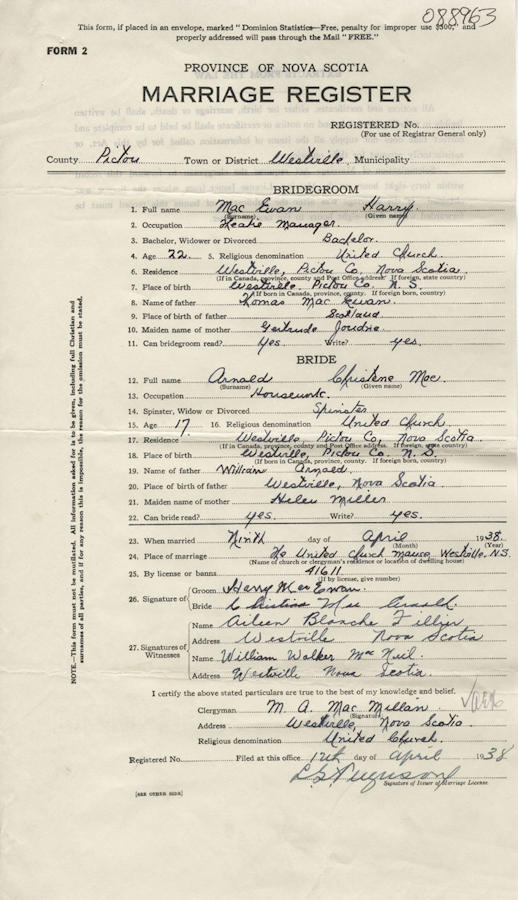 088963
This form, if placed in an envelope, marked "Dominion Statistics—Free, penalty for improper use $300," and
properly addressed will pass through the Mail "FREE."
FORM 2
PROVINCE OF NOVA SCOTIA
MARRIAGE REGISTER
REGISTERED No.
(For use of Registrar General only)
County Pictou Town or District Westville Municipality
BRIDEGROOM
1. Full name Mac Ewan Harry
(Surname) (Given name)
2. Occupation Manager.
3. Bachelor, Widower or Divorced Bachelor.
4. Age 22. 5. Religious denomination United Church
6. Residence Westville, Pictou Co, Nova Scotia.
(If in Canada, province, county and Post Office address. If foreign, state country)
7. Place of birth Westville Pictou Co. N.S.
(If born in Canada, province, county. If foreign born, country)
8. Name of father Thomas Mac Ewan.
9. Place of birth of father Scotland
10. Maiden name of mother Gertrude Joudrie
11. Can bridegroom read? yes Write? yes.
BRIDE
12. Full name Arnold Christene Mae.
(Surname) (Given name)
13. Occupation Housework.
14. Spinster, Widow or Divorced Spinster
15. Age 17. 16. Religious denomination United Church
17. Residence Westville Pictou Co, Nova Scotia.
(If in Canada, province, county and Post Office address. If foreign, state country)
18. Place of birth Westville, Pictou Co. N.S.
(If born in Canada, province, county. If foreign born, country)
19. Name of father William Arnold.
20. Place of birth of father Westville, Nova Scotia
21. Maiden name of mother Helen Miller
22. Can bride read? yes. Write? yes.
23. When married Ninth day of April 1938.
(Month) (Year)
24. Place of marriage The United Church Manse, Westville, N.S.
(Name of church or clergyman's residence or location of dwelling house)
25. By license or banns 41611
(If by license, give number)
26. Signature of Groom Harry Mac Ewan.
Bride Christina Mae Arnold.
27. Signatures of Witnesses
Name Aileen Blanche
Address Westville Nova Scotia
Name William Walker Mac Neil.
Address Westville Nova Scotia.
I certify the above stated particulars are true to the best of my knowledge and belief.
Clergyman M. A. Mac Millan
(Signature)
Address Westville, Nova Scotia
Religious denomination United Church.
Registered No. Filed at this office 12th day of April 1938
L S Ferguson
Signature of Issuer of Marriage License
[SEE OTHER SIDE]
NOTE.—This form must not be mutilated. All information asked for is to be given, including full Christian and
surnames of all parties, and if for any reason this is impossible, the reason for the omission must be stated.